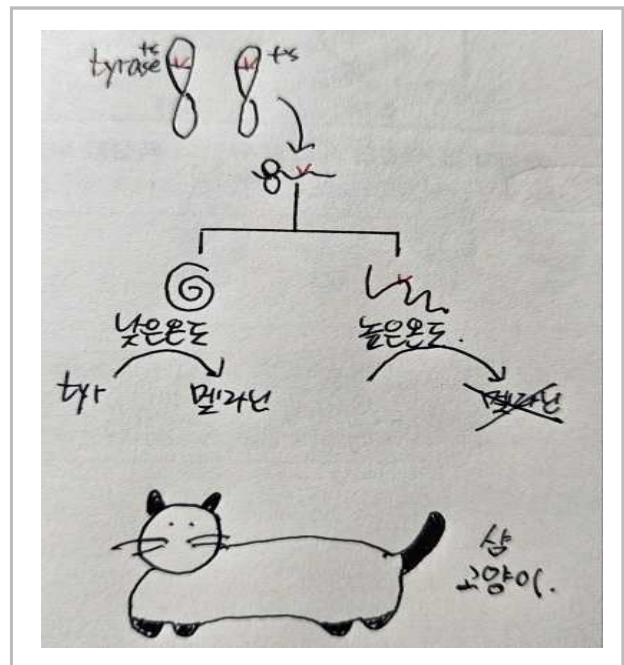 tyrase ts ts
낮은온도 높은온도.
tyr 멜라닌 멜라닌
샴
고양이.